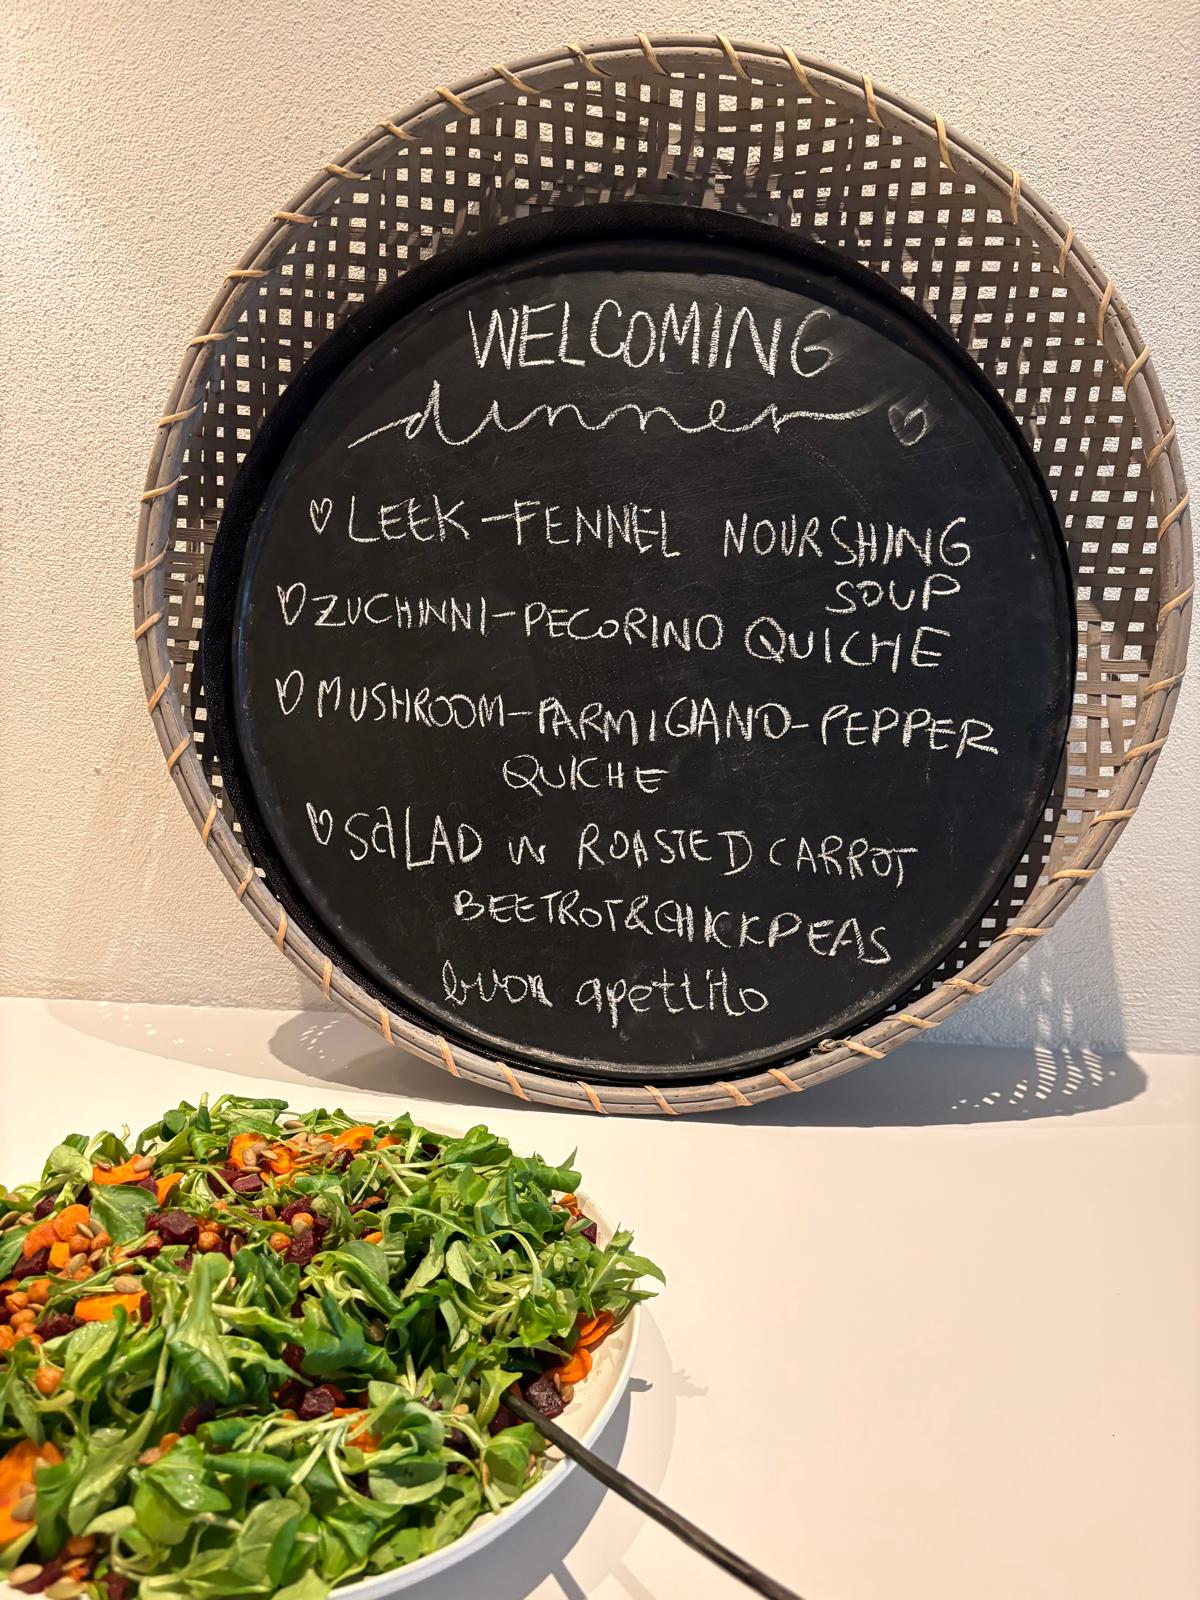 WELCOMING
dinner
LEEK-FENNEL NOURSHING
SOUP
ZUCHINNI-PECORINO QUICHE
MUSHROOM-PARMIGIANO-PEPPER
QUICHE
SALAD W ROASTED CARROT
BEETROT&CHICKPEAS
buon apettito